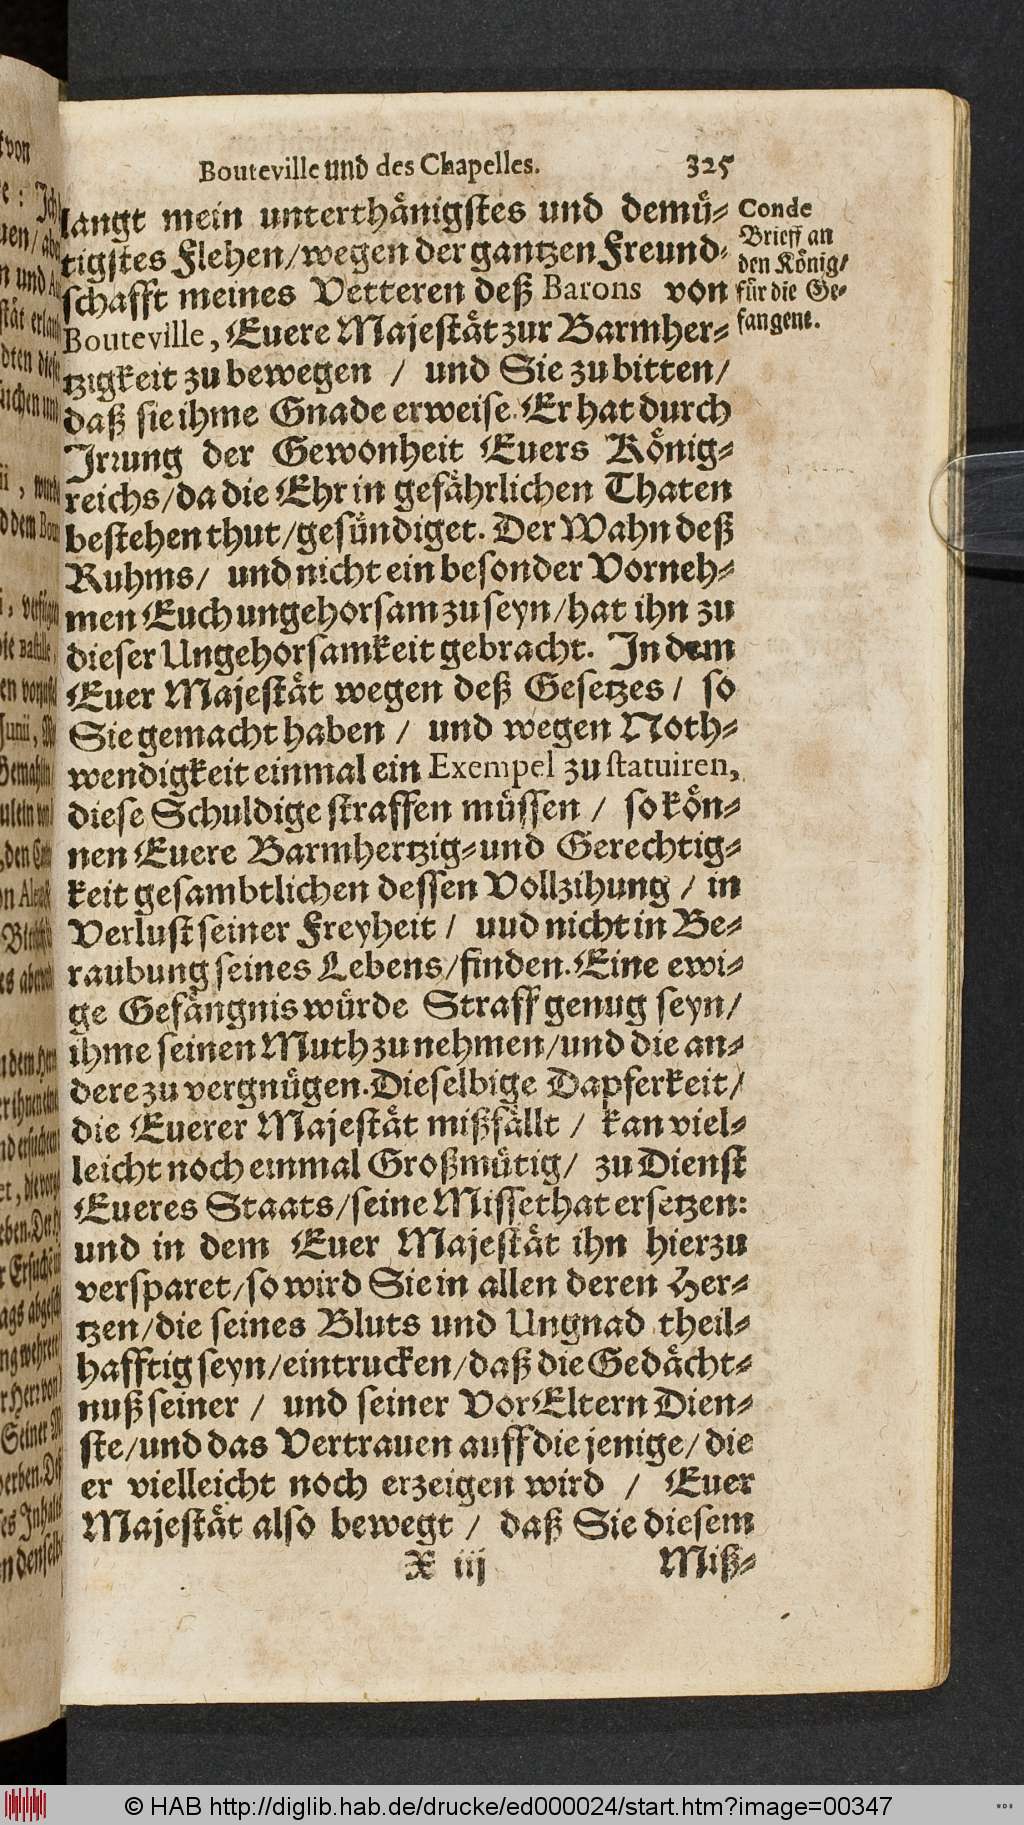 Bouteville und des Chapelles. 325
langt mein unterthänigstes und demü-
tigstes Flehen/wegen der gantzen Freund-
schafft meines Vetteren deß Barons von
Bouteville, Euere Majestät zur Barmher-
tzigkeit zu bewegen / und Sie zu bitten/
daß sie ihme Gnade erweise. Er hat durch
Irrung der Gewonheit Euers König-
reichs/da die Ehr in gefährlichen Thaten
bestehen thut/gesündiget. Der Wahn deß
Ruhms/ und nicht ein besonder Vorneh-
men Euch ungehorsam zu seyn/hat ihn zu
dieser Ungehorsamkeit gebracht. In dem
Euer Majestät wegen deß Gesetzes/ so
Sie gemacht haben / und wegen Noth-
wendigkeit einmal ein Exempel zu statuiren,
diese Schuldige straffen müssen / so kön-
nen Euere Barmhertzig-und Gerechtig-
keit gesambtlichen dessen Vollzihung / in
Verlust seiner Freyheit / uud nicht in Be-
raubung seines Lebens/finden. Eine ewi-
ge Gefängnis würde Straff genug seyn/
ihme seinen Muth zu nehmen/und die an-
dere zu vergnügen. Dieselbige Dapferkeit/
die Euerer Majestät mißfällt / kan viel-
leicht noch einmal Großmütig/ zu Dienst
Eueres Staats/seine Missethat ersetzen:
und in dem Euer Majestät ihn hierzu
versparet/so wird Sie in allen deren Her-
tzen/die seines Bluts und Ungnad theil-
hafftig seyn/eintrucken/daß die Gedächt-
nuß seiner / und seiner VorEltern Dien-
ste/und das Vertrauen auff die jenige/die
er vielleicht noch erzeigen wird / Euer
Majestät also bewegt / daß Sie diesem
X iij Miß-
Conde
Brieff an
den König/
für die Ge-
fangene.
© HAB http://diglib.hab.de/drucke/ed000024/start.htm?image=00347